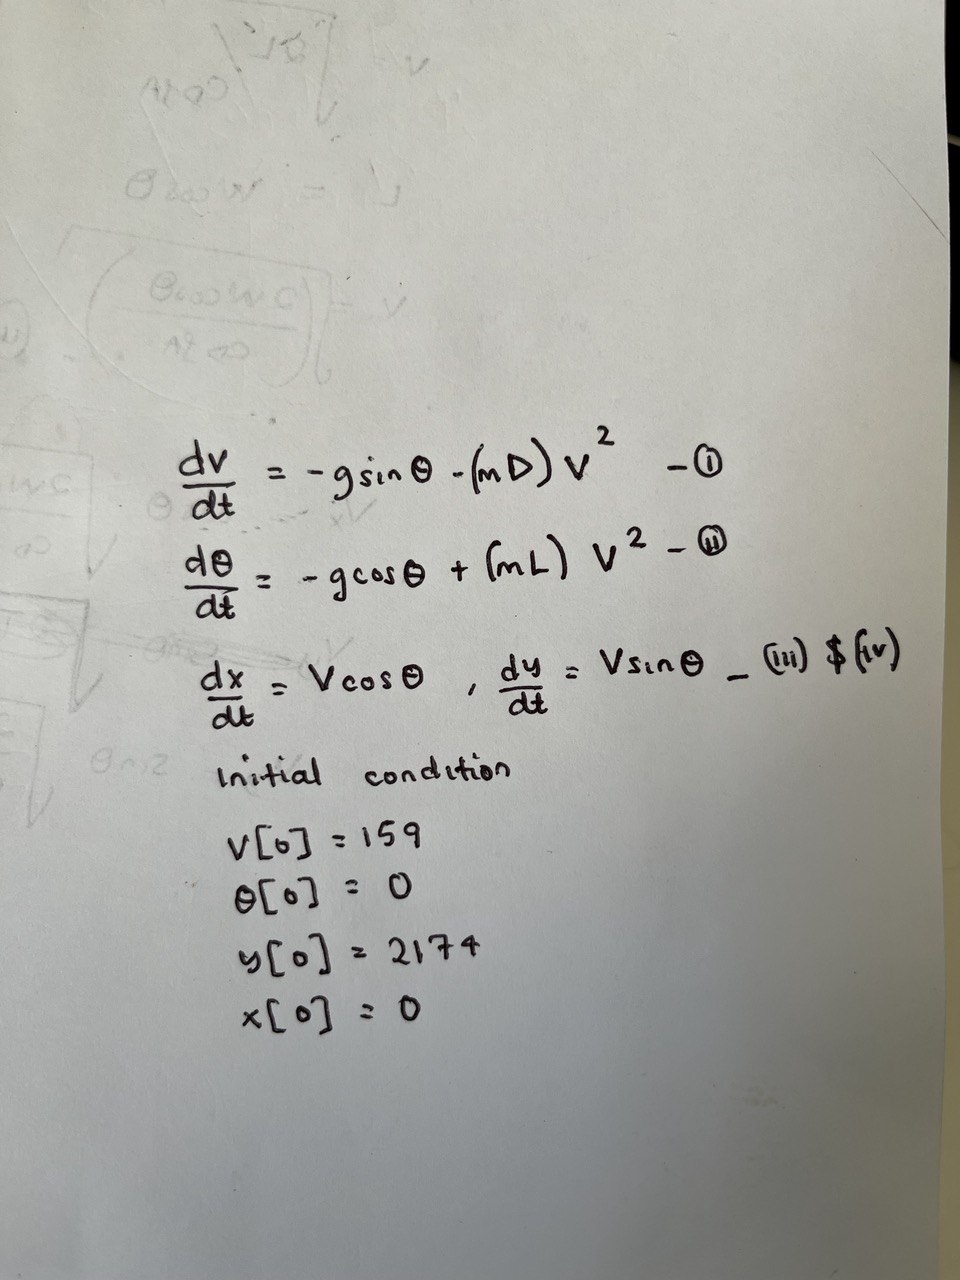 dv/dt = -gsinθ -(mD)v² - ⓘ
dθ/dt = -gcosθ + (mL) v² - ⓘⓘ
dx/dt = Vcosθ , dy/dt = Vsinθ - (iii) $ (iv)
initial condition
V[0] = 159
θ[0] = 0
y[0] = 2174
x[0] = 0